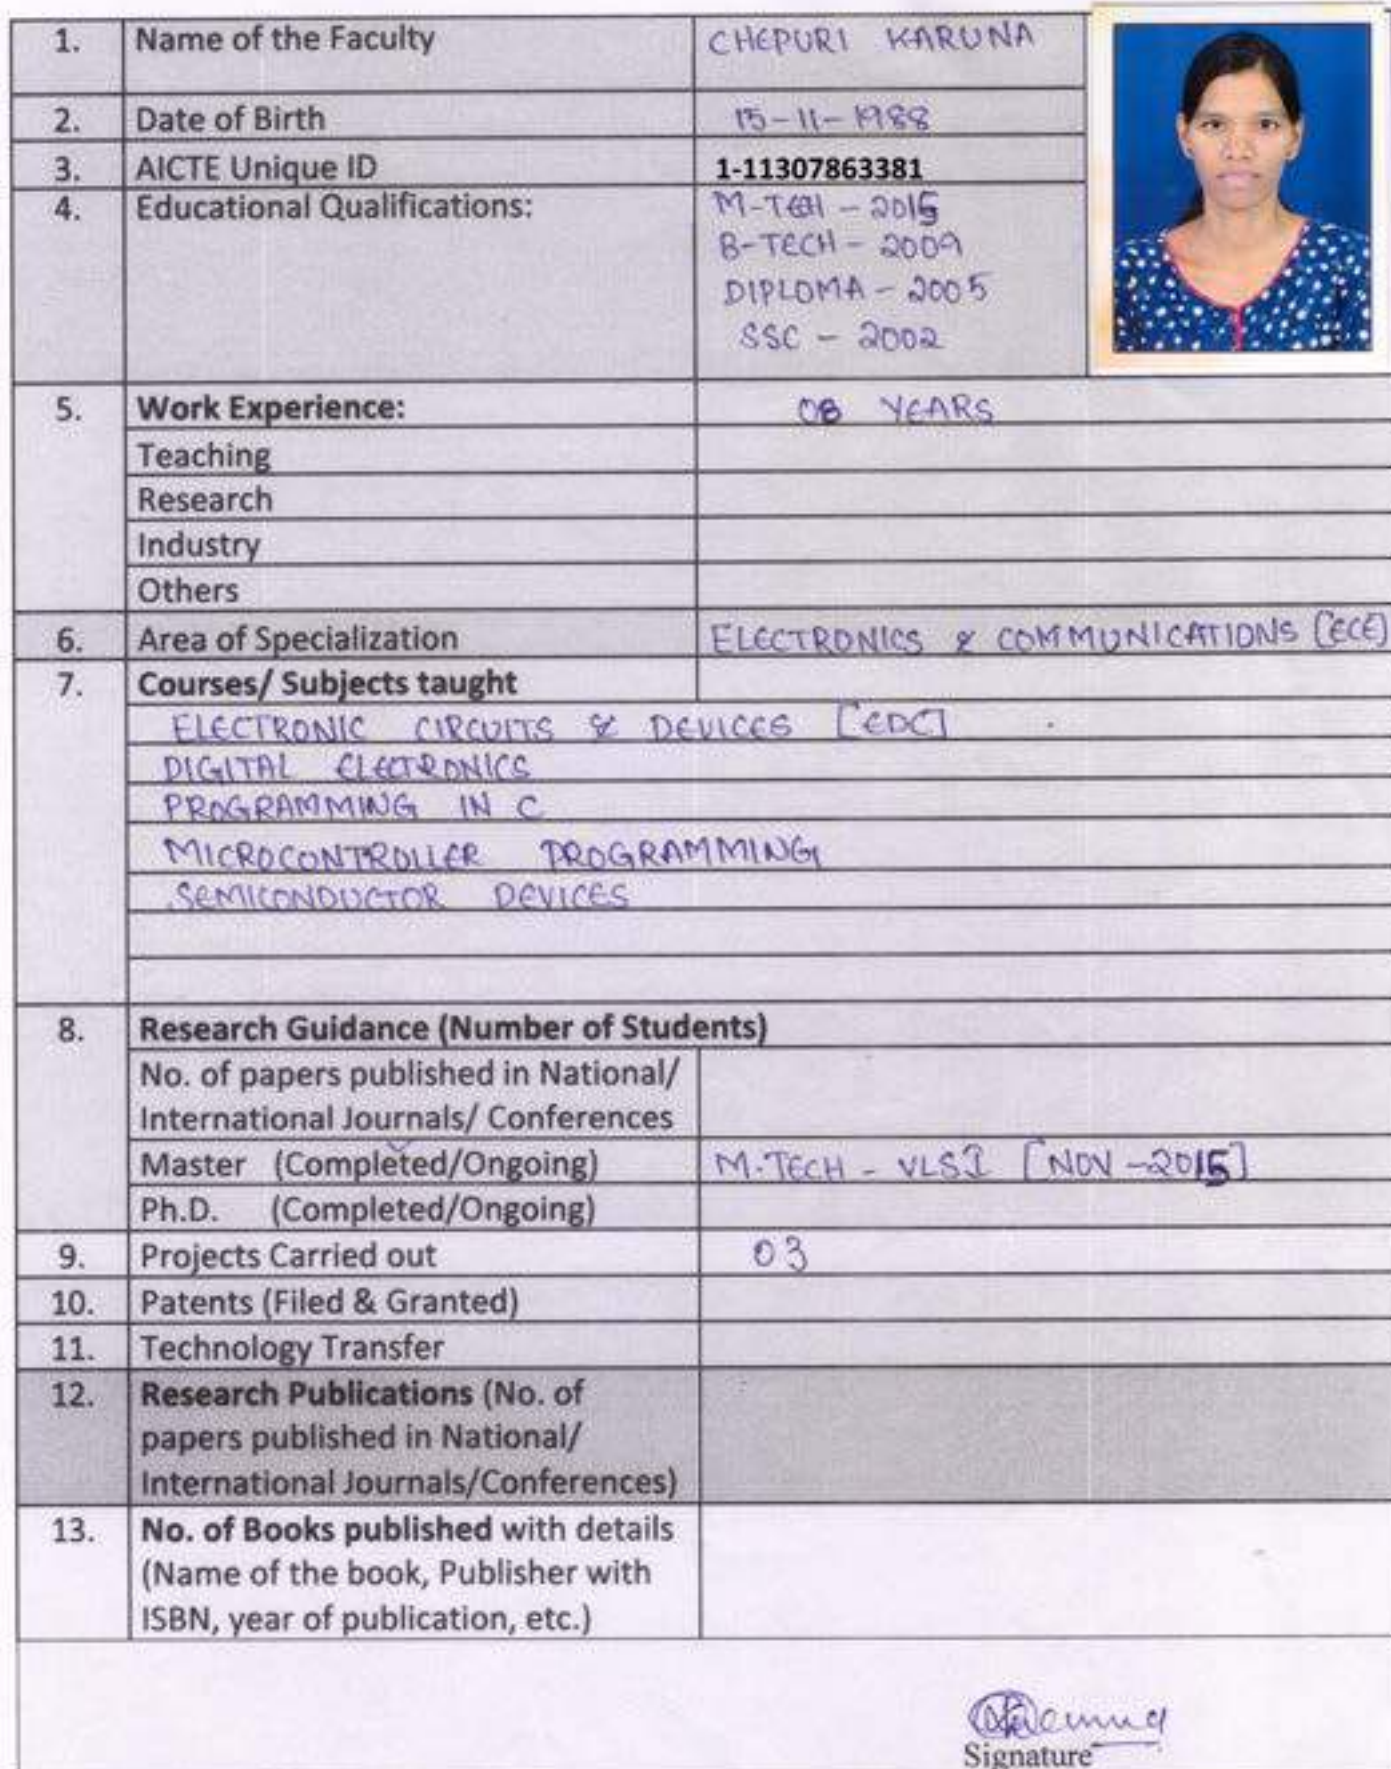 1. Name of the Faculty CHEPURI KARUNA
2. Date of Birth 15-11-1988
3. AICTE Unique ID 1-11307863381
4. Educational Qualifications: M-TECH - 2015
B-TECH - 2009
DIPLOMA - 2005
SSC - 2002
5. Work Experience: 08 YEARS
Teaching
Research
Industry
Others
6. Area of Specialization ELECTRONICS & COMMUNICATIONS [ECE]
7. Courses/ Subjects taught
ELECTRONIC CIRCUITS & DEVICES [EDC]
DIGITAL ELECTRONICS
PROGRAMMING IN C
MICROCONTROLLER PROGRAMMING
SEMICONDUCTOR DEVICES
8. Research Guidance (Number of Students)
No. of papers published in National/
International Journals/ Conferences
Master (Completed/Ongoing) M.TECH - VLSI [NOV -2015]
Ph.D. (Completed/Ongoing)
9. Projects Carried out 03
10. Patents (Filed & Granted)
11. Technology Transfer
12. Research Publications (No. of
papers published in National/
International Journals/Conferences)
13. No. of Books published with details
(Name of the book, Publisher with
ISBN, year of publication, etc.)
Signature